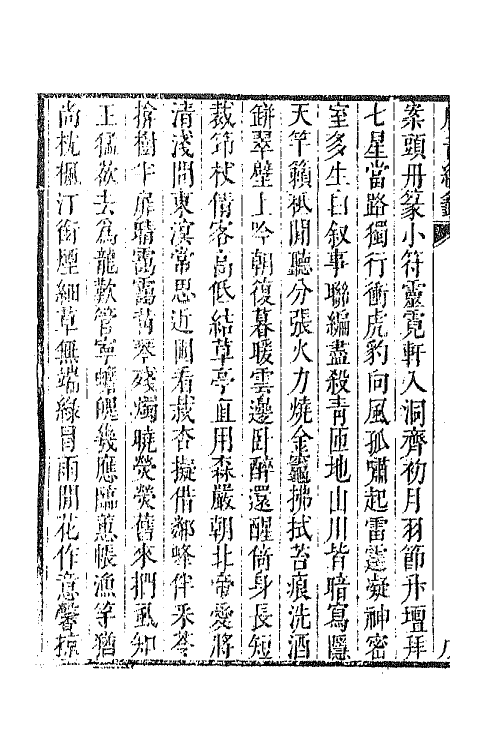 案頭丹篆小符靈霓軒入洞齊初月羽節升壇拜
七星當路獨行衝虎豹向風孤嘯起雷霆凝神密
室多生白叙事聯編盡殺青匝地山川皆暗寫隱
天竽籟祇閒聽分張火力燒金竈拂拭苔痕洗酒
缾翠壁上吟朝復暮暖雲邊卧醉還醒倚身長短
裁笻杖倩客高低結草亭直用森嚴朝北帝愛將
清淺問東溟常思近圃看栽杏擬借鄰峰伴釆苓
掩樹半扉晴靄靄背琴殘燭曉熒熒舊來捫虱知
王猛欲去為龍歎管寧蟾魄幾應臨蕙帳漁竿猶
尚枕楓汀銜煙細草無端綠冒雨閒花作意馨掠